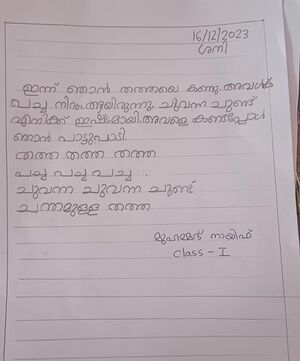 16/12/2023
ശനി
ഇന്ന് ഞാൻ തത്തയെ കണ്ടു. അവൾക്ക്
പച്ച നിറം ആയിരുന്നു. ചുവന്ന ചുണ്ട്
എനിക്ക് ഇഷ്ടമായി. അവളെ കണ്ടപ്പോൾ
ഞാൻ പാട്ടുപാടി.
തത്ത തത്ത തത്ത
പച്ച പച്ച പച്ച
ചുവന്ന ചുവന്ന ചുണ്ട്
ചന്തമുള്ള തത്ത
മുഹമ്മദ് നായിഫ്
class - I